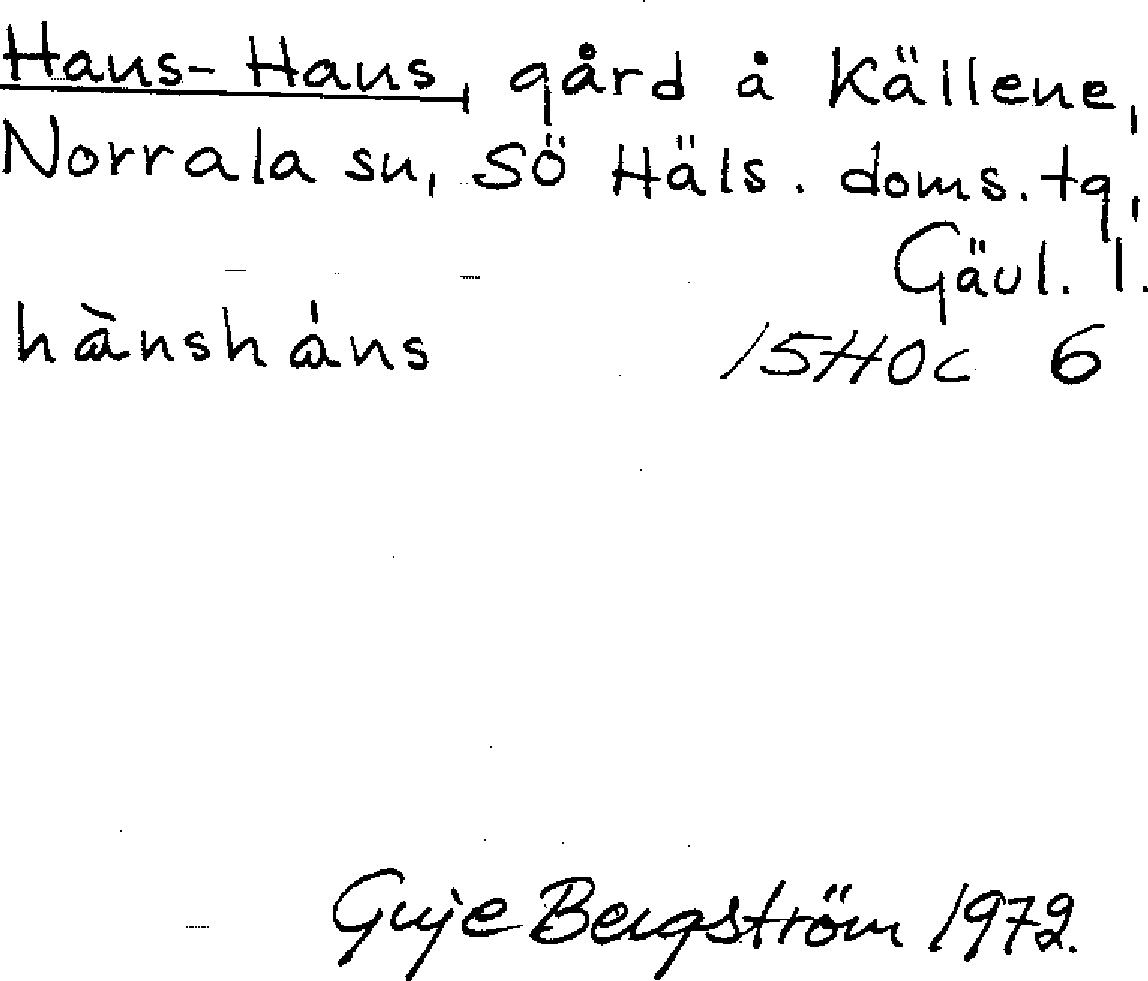 Hans-Hans, gård å Källene,
Norrala sn, Sö Häls. doms. tg,
Gävl. l.
hànsháns 15H0c 6
Guje Bergström 1972.